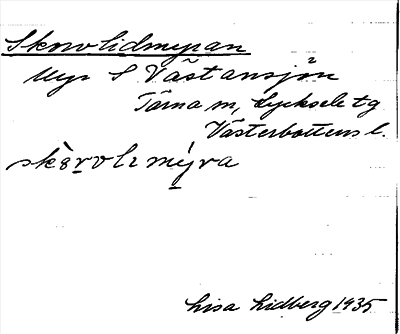 Skorvlidmyran
Myr S Västansjön
Tärna sn, Lycksele tg
Västerbottens l.
skòrvlımýra
Lisa Lidberg 1935